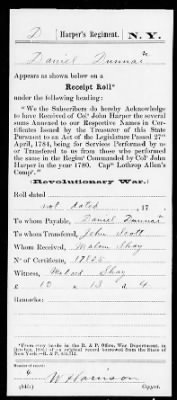 D | Harper's Regiment. | N. Y.
Daniel Dunna
Appears as shown below on a
Receipt Roll*
under the following heading:
"We the Subscribers do hereby Acknowledge
to have Received of Col. John Harper the several
Sums Annexed to our Respective Names in Cer-
tificates Issued by the Treasurer of this State
Pursuant to an Act of the Legislature Passed 27th
April, 1784, being for Services Performed by us
or Transfered to us from those who performed
the same in the Regimt Commanded by Col. John
Harper in the year 1780. Capt Lothrop Allen's
Compy."
(Revolutionary War.)
Roll dated
not dated, 17
To whom Payable, Daniel Dunna
To whom Transferred, John Scott
Whom Received, Shay
No. of Certificate, 17825
Witness, Shay
£ 10 s 13 d 4
Remarks:
*From copy (made in the R. & P. Office, War Department, in
of an original record borrowed from the State of
New York—R. & P.
W Harrison
Copyist.